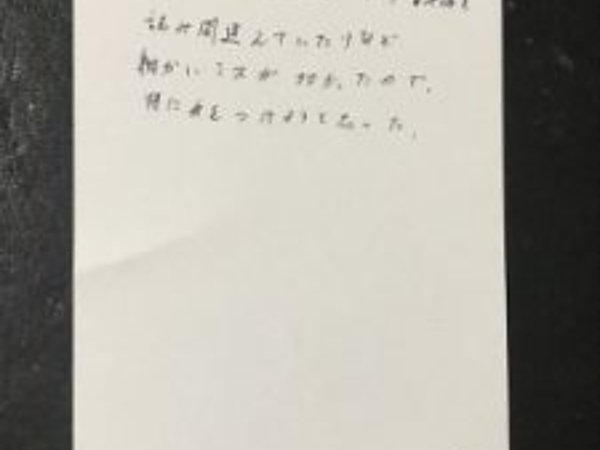 読み間違えていたりなど
細かいミスが多かったので、
特に気をつけようと思った。